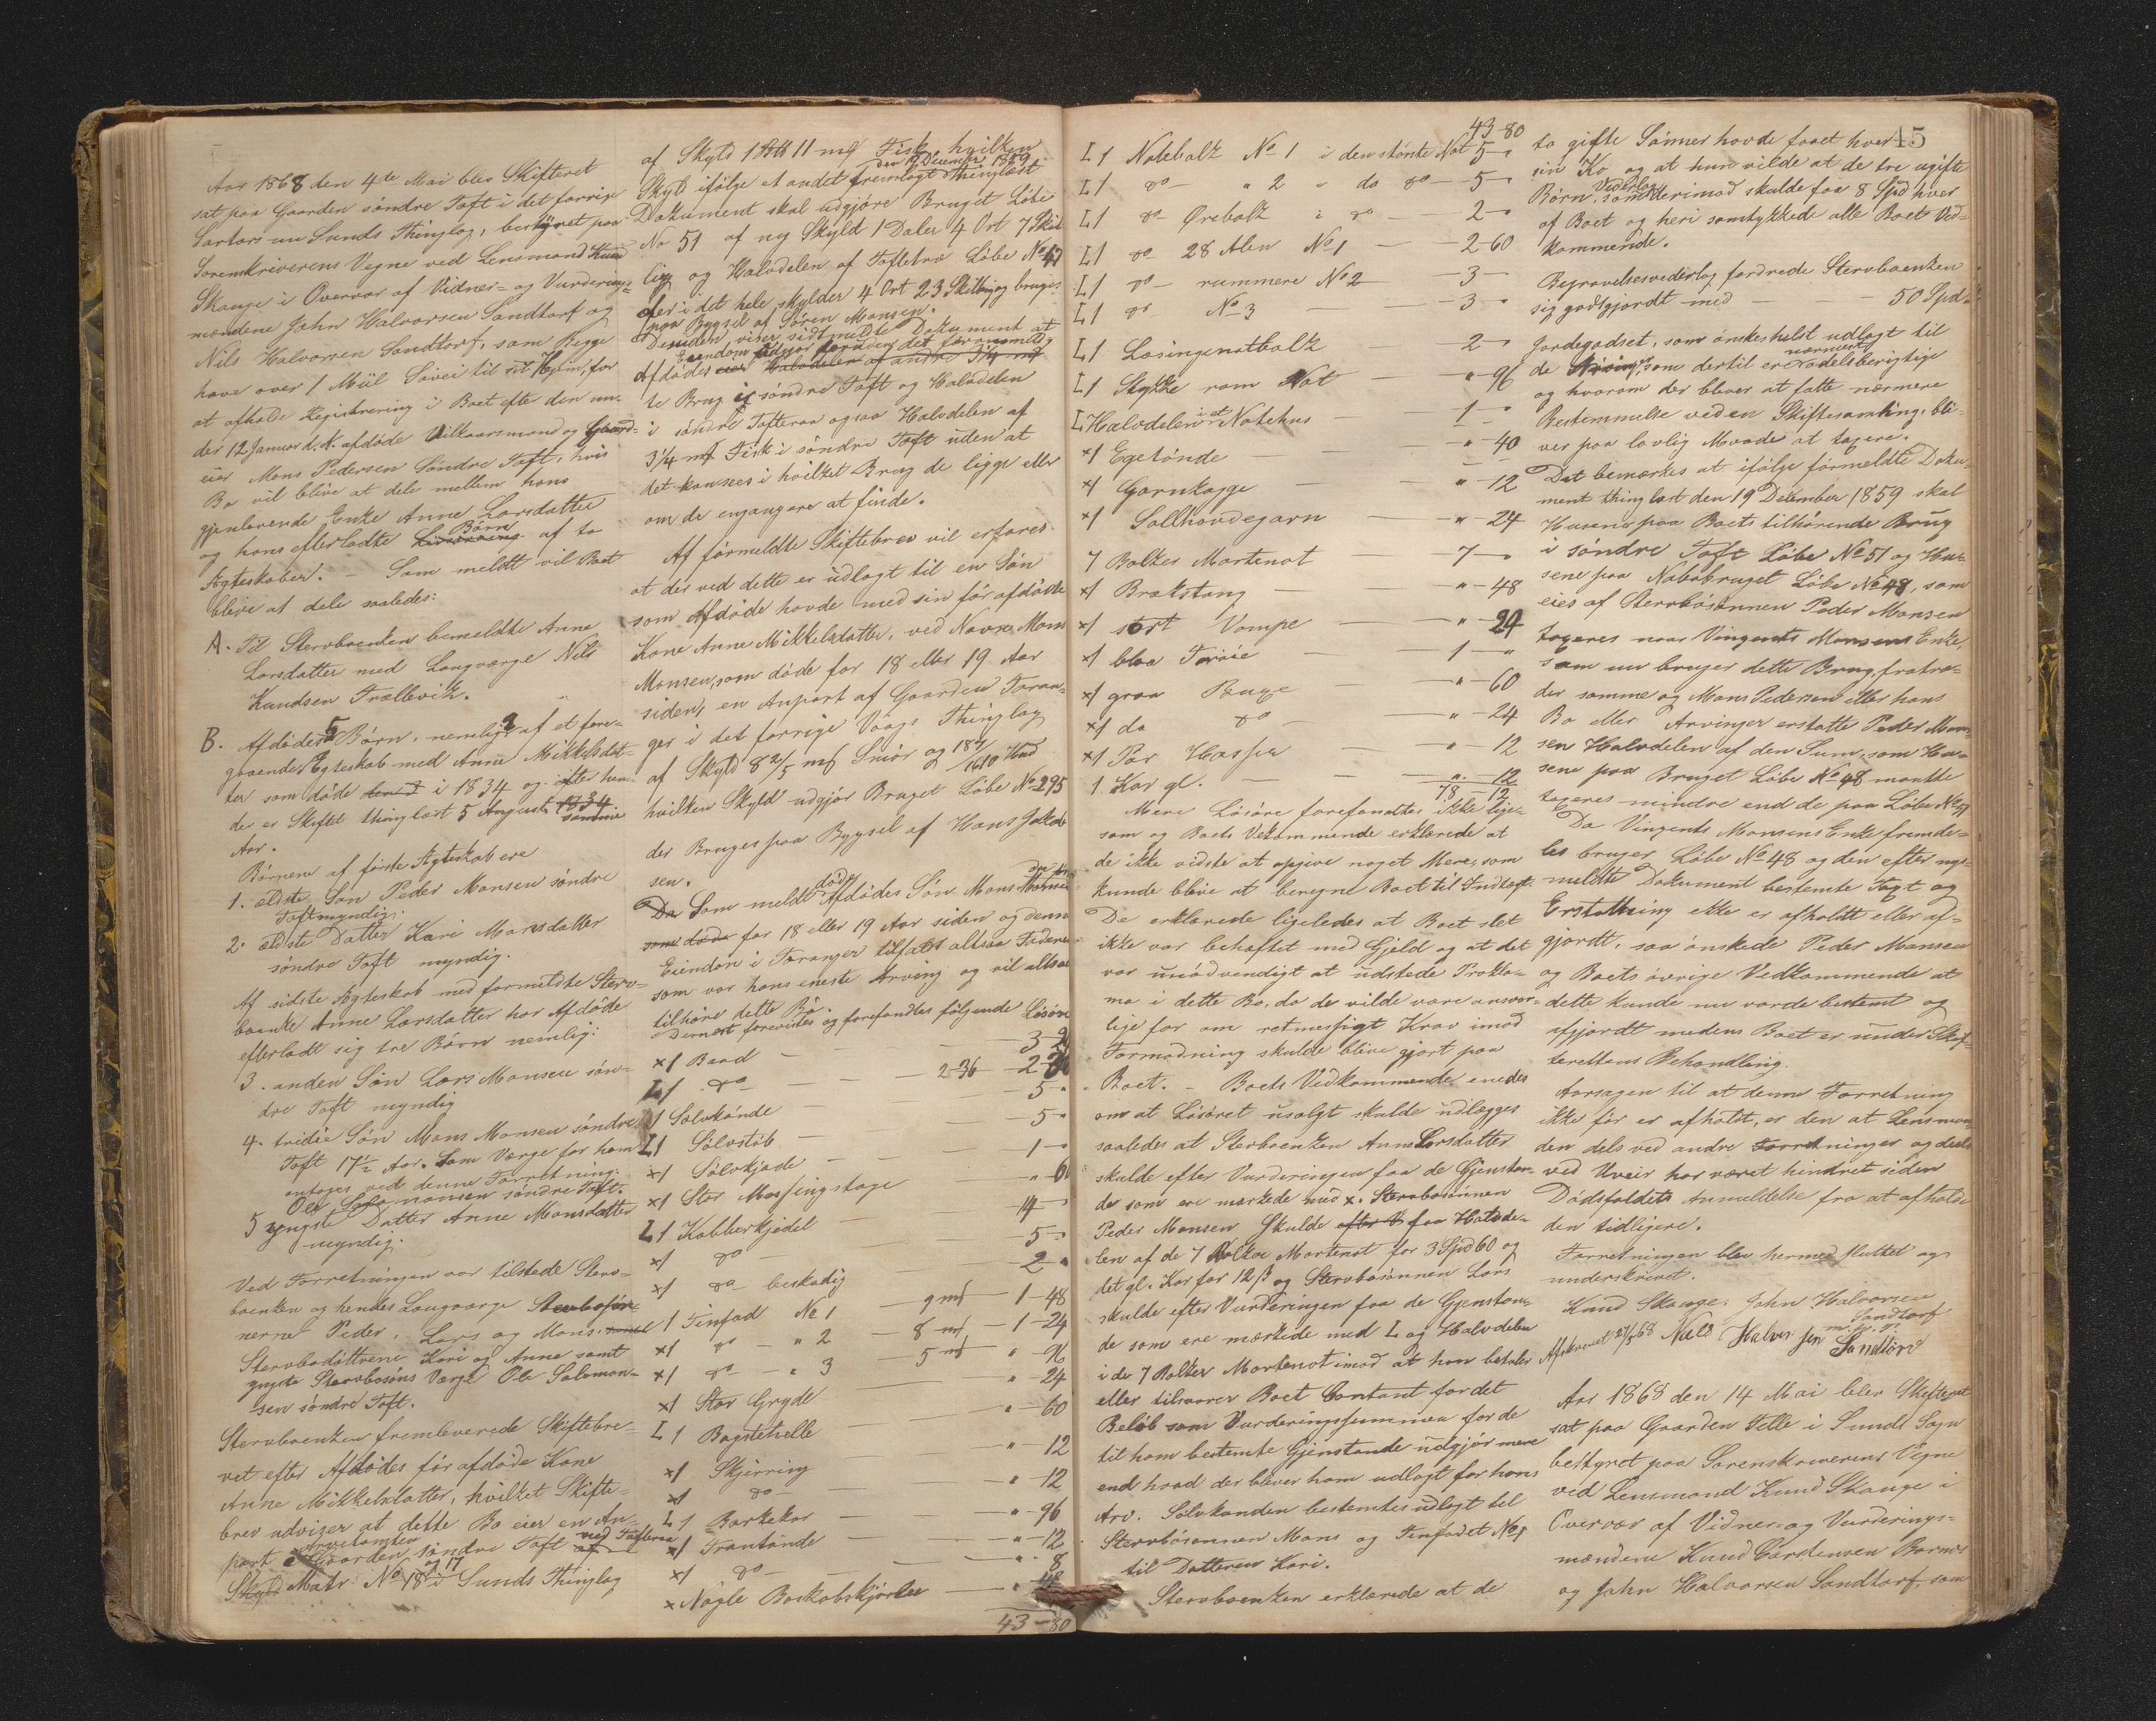 Aar 1868 den 4de Mai blev Skifteret
sat paa Gaarden søndre Toft i det forrige
Sartors nu Sunds Thinglag, bestyret paa
Sorenskriverens Vegne ved Lensmand Knud
Skauge i Overvær af Vidner- og Vurderings-
mændene John Halvorsen Sandtorf og
Nils Halvorsen Sandtorf, som Begge
have over 1 Miil Søvei til sit Hjem, for
at afholde Registrering i Boet efter den un-
der 12 Januar d. A. afdøde Vilkaarsmand og Gaard-
eier Mons Pedersen Søndre Toft, hvis
Bo vil blive at dele mellem hans
gjenlevende Enke Anne Larsdatter
og hans efterladte Børn af to
Ægteskaber. – Som meldt vil Boet
blive at dele saaledes:
A. Til Stervboenken bemeldte Anne
Larsdatter med Laugværge Nils
Knudsen Trællevik.
B. Afdødes 5 Børn, nemlig 2 af et fore-
gaaende Ægteskab med Anne Mikkelsdat-
ter som døde i 1834 og efter hen-
de er Skiftet thinglæst 5 August samme
Aar.
Børnene af første Ægteskab ere
1. ældste Søn Peder Monsen søndre
Toft myndig.
2. ældste Datter Kari Monsdatter
søndre Toft myndig.
Af sidste Ægteskab med formeldte Sterv-
boenke Anne Larsdatter har Afdøde
efterladt sig tre Børn nemlig:
3. anden Søn Lars Monsen søn-
dre Toft myndig
4. tridie Søn Mons Monsen søndre
Toft 17½ Aar. Som Værge for ham
antages ved denne Forretning:
Ole Salomonsen søndre Toft.
5 yngste Datter Anne Monsdatter
myndig.
Ved Forretningen var tilstede Sterv-
boenken og hendes Laugværge Stervbosøn-
nerne Peder, Lars og Mons,
Stervbodøttrene Kari og Anne samt
yngste Stervbosøns Værge Ole Salomon-
sen søndre Toft.
Stervboenken fremleverede Skiftebre-
vet efter Afdødes før afdøde Kone
Anne Mikkelsdatter, hvilket Skifte-
brev udviser at dette Bo eier en An-
part i Gaarden søndre Toft ved Tofteraa
Matr. No 18 og 17 i Sunds Thinglag
af Skyld 1 11 mf Fisk, hvilken
den 19 December 1859
Skyld ifølge et andet fremlagt Thinglæst
Dokument skal udgjøre Bruget Løbe
No 51 af ny Skyld 1 Daler 4 Ort 7 Skil-
ling og Halvdelen af Tofterø Løbe No 47
der i det hele skylder 4 Ort 23 Skilling og bruges
paa Bygsel af Søren Monsen.
Desuden viser sidtmeldte Dokument at
Afdødes Eiendom udgjør foruden det forommeld-
te Brug i søndre Toft og Halvdelen
i søndre Tofteraa ogsaa Halvdelen af
3¼ mf Fisk i søndre Toft uden at
det kan sees i hvilket Brug de ligge eller
om de engang ere at finde.
Af førmeldte Skiftebrev vil erfares
at der ved dette er udlagt til en Søn
som Afdøde havde med sin før afdøde
Kone Anne Mikkelsdatter, ved Navn Mons
Monsen, som døde for 18 eller 19 Aar
siden, en Anpart af Gaarden Toran-
ger i det forrige Vaags Thinglag
af Skyld 8 2/5 mf Smør og Hud
hvilken Skyld udgjør Bruget Løbe No 295
der Bruges paa Bygsel af Hans Jakob-
sen.
Som meldt døde Afdødes Søn Mons Monsen
for 18 eller 19 Aar siden og denne
Eiendom i Toranger tilfaldt altsaa Faderen
som var hans eneste Arving og vil altsaa
tilhøre dette Bo.
Dernæst forevistes og forefandtes følgende Løsøre
x1 Baad — 3-
L1 do — 2-36
1 Sølvkande — 5-
L1 Sølvstøb — 5-
x1 Sølvkjæde — 1-
x1 Stor Messingstage
L1 Kobberkjedel — 14-
x1 do — 5-
x1 do beskadig — 2-
1 Tinfad No 1 — 9 mf — 1-48
x1 do " 2 — 8 mf — 1-24
x1 do " 3 — 5 mf — "-96
x1 Stor Gryde — "-24
L1 Bagstehelle — "-60
x1 Skjerring — "-12
x1 do — "-12
L1 Barkekar — "-96
x1 Trantønde — "-12
x1 do — "-8
x Nogle Boskabskjørler
43-80
43-80
L1 Notebolk No 1 i den største Not 5-
L1 do " 2 " do do 5-
L1 do Ørebolk i do 2-
L1 do 28 Alen No 1 — 2-60
L1 do rummere No 2 — 3-
L1 do No 3 — 3-
L1 Løsingenotbolk — 2-
L1 Stykke ram Not — "-96
L Halvdelen i et Notehus — 1-
x1 Egetønde — "-40
x1 Garnkagge — "-12
x1 Sallhovdegarn — "-24
7 Bolker Mortenot — 7-
x1 Brækstang — "-48
x1 stort Vompe — "-24
x1 blaa Trøie — 1-"
x1 graa Buxe — "-60
x1 do do — "-24
x1 Par Hasper — "-12
1 Kar gl. — "-12
78-12
Mere Løsøre forefandtes ikke lige-
som og Boets Vekommende erklærede at
de ikke vidste at opgive noget Mere, som
kunde blive at beregne Boet til Indtægt.
De erklærede ligeledes at Boet slet
ikke var behæftet med Gjeld og at det
var unødvendigt at udstede Prokla-
ma i dette Bo, da de vilde være ansvar-
lige for om retmessigt Krav imod
Formodning skulde blive gjort paa
Boet. – Boets Vedkommende enedes
om at Løsøret usolgt skulde udlægges
saaledes at Sterboenken Anne Larsdatter
skulde efter Vurderingen faa de Gjenstan-
de som ere mærkede med x. Stervbosønnen
Peder Monsen skulde faa Halvde-
len af de 7 Bolker Mortenot for 3 Spd 60 og
det gl. Kar for 12 ß og Stervbosønnen Lars
skulde efter Vurderingen faa de Gjenstan-
de som ere mærkede med L og Halvdelen
i de 7 Bolker Mortenot imod at han betaler
eller tilsvarer Boet Contant for det
Beløb som Vurderingssummen for de
til ham bestemte Gjenstande udgjør mere
end hvad der bliver ham udlagt for hans
Arv. Sølvkanden bestemtes udlagt til
Stervbosønnen Mons og Tinfadet No 1
til Datteren Kari.
Stervboenken erklærede at de
45
to gifte Sønner havde faaet hver
sin Ko og at hun vilde at de tre ugifte
Børn som Vederlag derimod skulde faa 8 Spd hver
af Boet og heri samtykkede alle Boets Ved-
kommende.
Begravelsesvederlag fordrede Stervboenken
sig godtgjordt med — 50 Spd.
Jordegodset, som ønskes helst udlagt til
de som dertil er nærmest odelsberigtige
og hvorom der bliver at fatte nærmere
Bestemmelse ved en Skiftesamling, bli-
ver paa lovlig Maade at taxere.
Det bemærkes at ifølge førmeldte Doku-
ment thinglæst den 19 December 1859 skal
Husene paa Boets tilhørende Brug
i søndre Toft Løbe No 51 og Hu-
sene paa Nabobruget Løbe No 48, som
eies af Stervbosønnen Peder Monsen
taxeres naar Vingents Monsens Enke,
som nu bruger dette Brug, fratræ-
der samme og Mons Pedersen eller hans
Bo eller Arvinger erstatte Peder Mon-
sen Halvdelen af den Sum, som Hu-
sene paa Bruget Løbe No 48 maatte
taxeres mindre end de paa Løbe No 51
Da Vingents Monsens Enke fremde-
les bruger Løbe No 48 og den efter nys-
meldte Dokument bestemte Taxt og
Erstattning ikke er afholdt eller af-
gjordt, saa ønskede Peder Monsen
og Boets øvrige Vedkommende at
dette kunde nu vorde bestemt og
afgjordt medens Boet er under Skif-
terettens Behandling.
Aarsagen til at denne Forretning
ikke før er afholdt, er den at Lensman-
den dels ved andre Forretninger og deels
ved Uveir har været hindret siden
Dødsfaldets Anmeldelse fra at afholde
den tidligere.
Forretningen blev hermed sluttet og
underskrevet.
Knud Skauge. John Halvorsen
Sandtorf
m. f. P.
Afskrevet 27/5 68 Niels Halvorsen Sandtorv
Aar 1868 den 14 Mai blev Skifteret
sat paa Gaarden Telle i Sunds Sogn
bestyret paa Sorenskriverens Vegne
ved Lensmand Knud Skauge i
Overvær af Vidner- og Vurderings-
mændene Knud Carstensen Børnes
og John Halvorsen Sandtorf, som